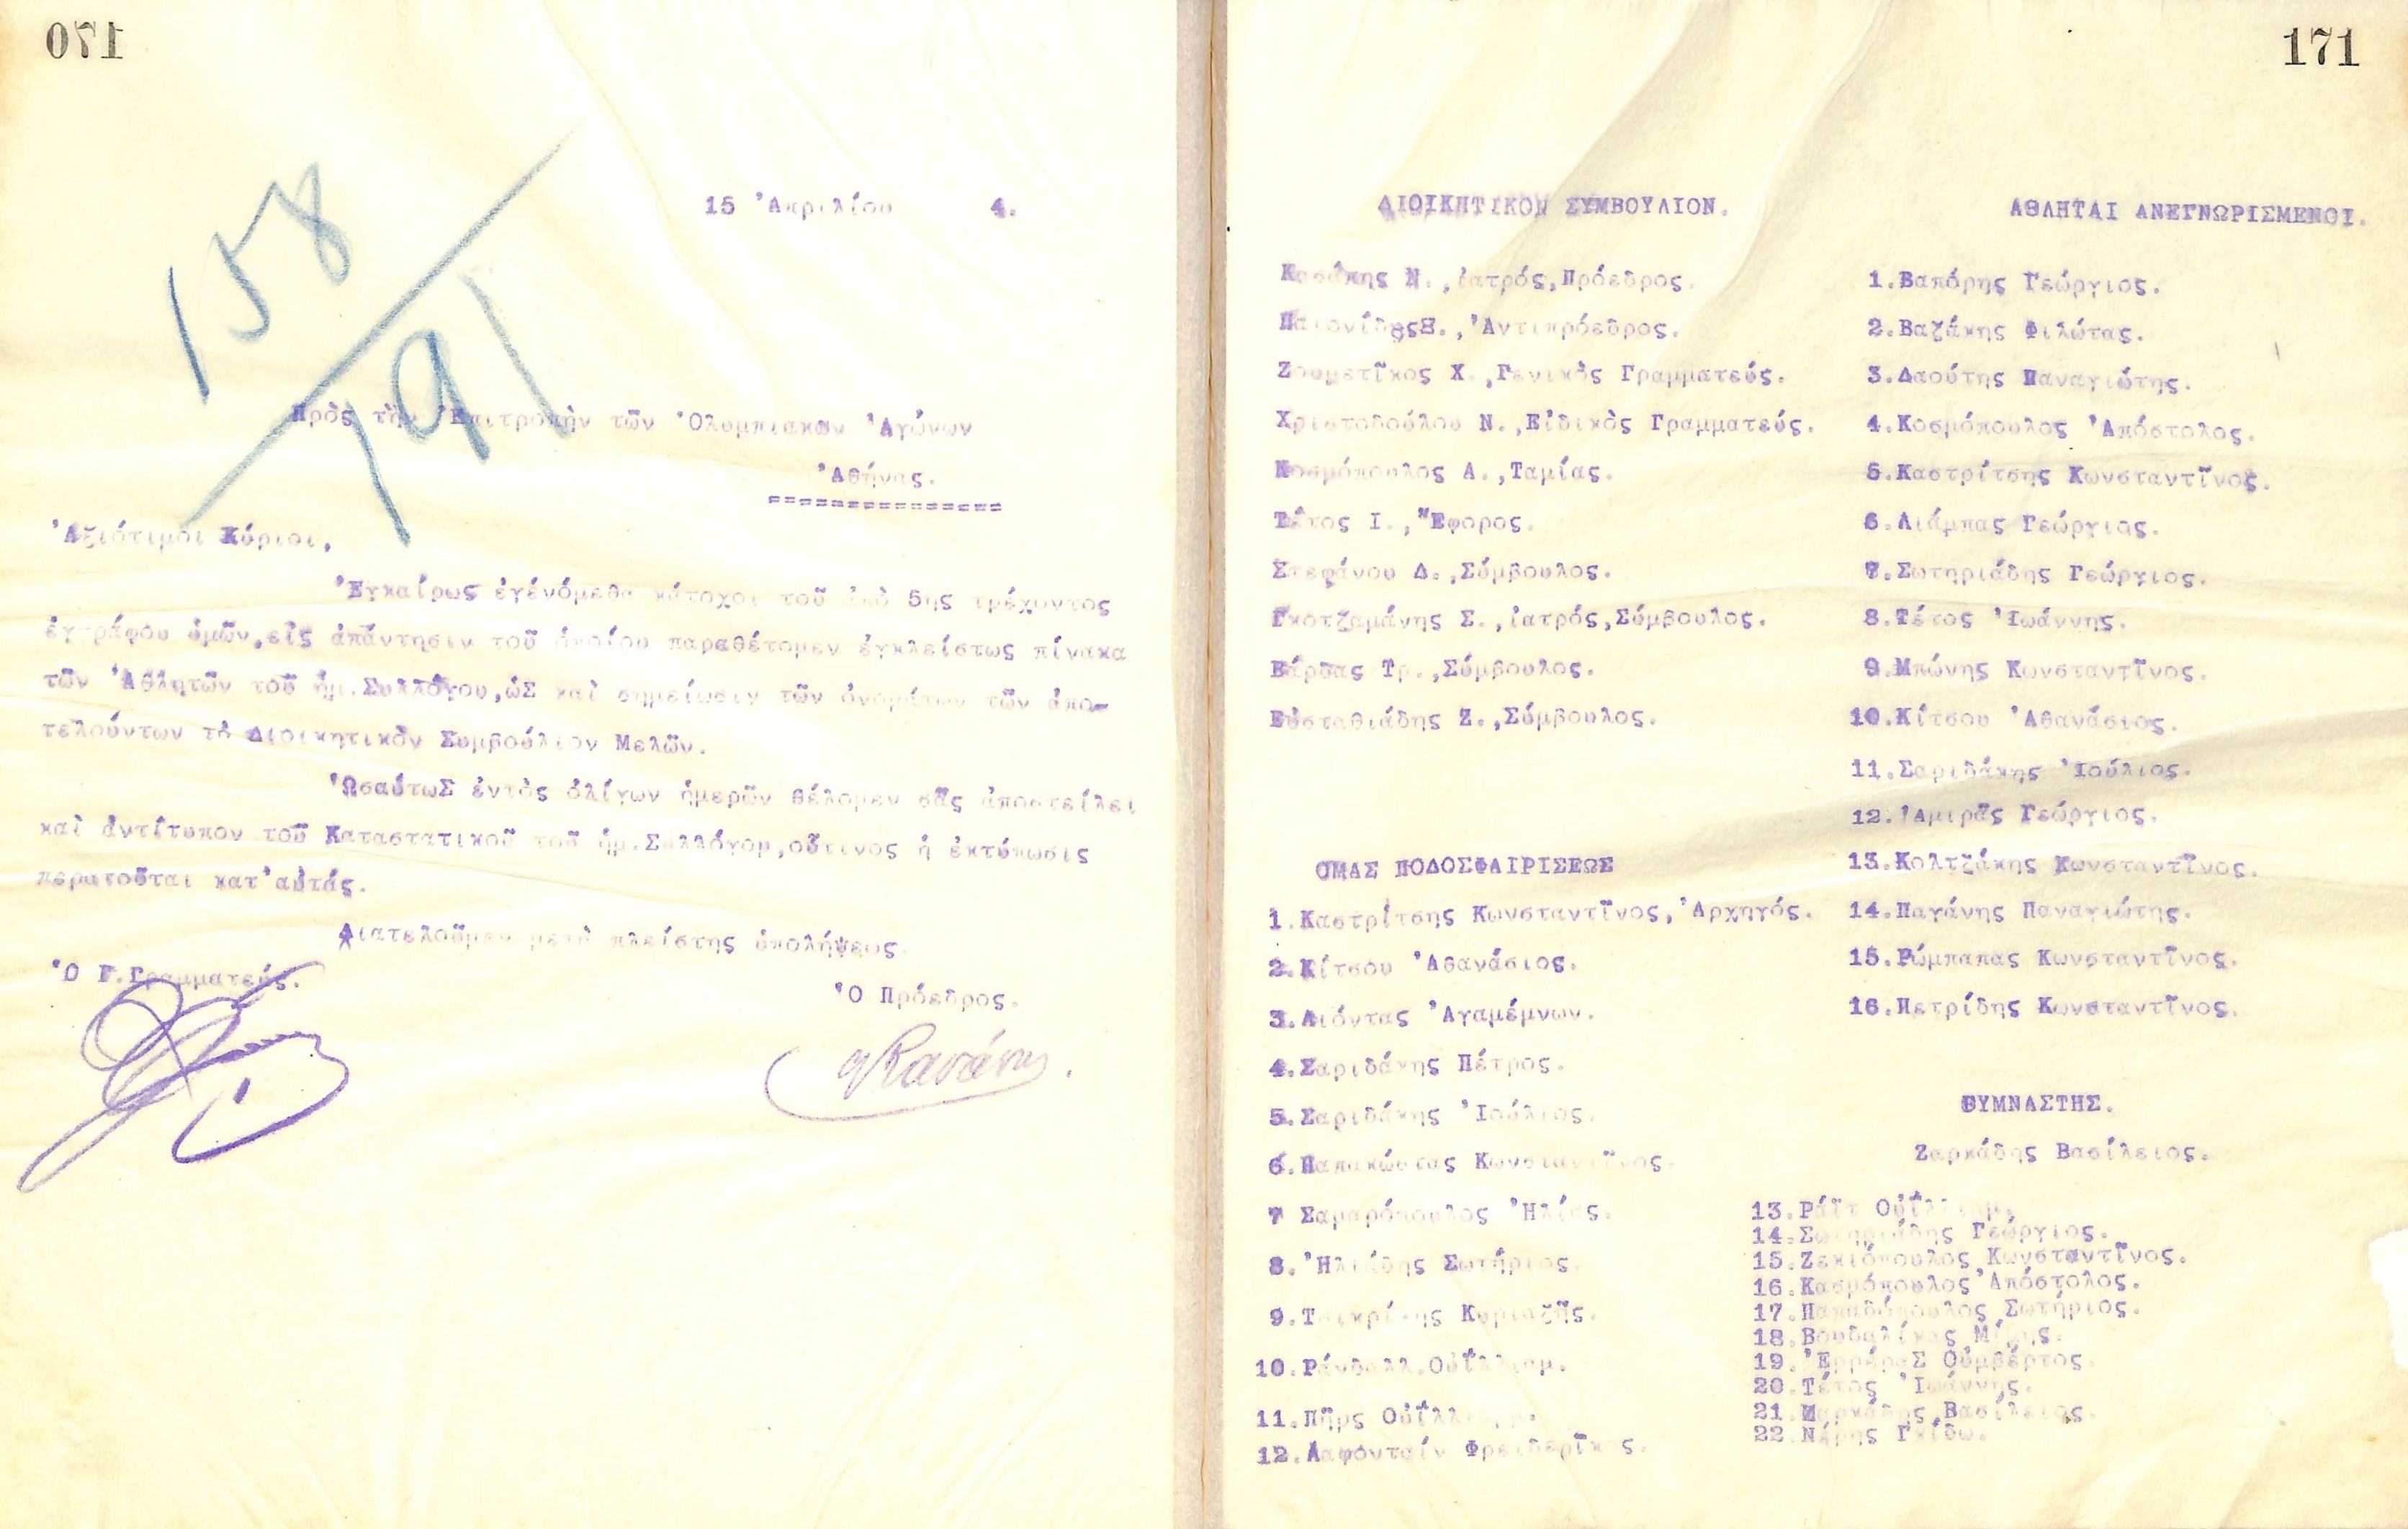 170
158
191
15 Ἀπριλίου 4.
Πρὸς τὴν Ἐπιτροπὴν τῶν Ὀλυμπιακων Ἀγώνων
Ἀθήνας.
===============
Ἀξιότιμοι Κύριοι,
Ἐγκαίρως ἐγένόμεθα κάτοχοι τοῦ ἀπὸ 5ης τρέχοντος
ἐγγράφου ὑμῶν,εἰς ἀπάντησιν τοῦ ὁποίου παραθέτομεν ἐγκλείστως πίνακα
τῶν Ἀθλητῶν τοῦ ἡμ.Συλλόγου,ὡΣ καὶ σημείωσιν τῶν ὀνομάτων τῶν ἀπο-
τελούντων τὸ Διοικητικὸν Συμβούλιον Μελῶν.
ὩσαύτωΣ ἐντὸς ὀλίγων ἡμερῶν θέλομεν σᾶς ἀποστείλει
καὶ ἀντίτυπον τοῦ Καταστατικοῦ τοῦ ἡμ.Συλλόγου,οὗτινος ἡ ἐκτύπωσις
περατοῦται κατ'αὐτάς.
Διατελοῦμεν μετὰ πλείστης ὑπολήψεως.
Ὁ Γ.Γραμματεύς.
Ὁ Πρόεδρος.
171
ΔΙΟΙΚΗΤΙΚΟΝ ΣΥΜΒΟΥΛΙΟΝ.
Κασάπης Ν.,ἰατρός,Πρόεδρος.
Παιονίδης Ξ.,Ἀντιπρόεδρος.
Ζουμετῖκος Χ.,Γενικὸς Γραμματεύς.
Χριστοδούλου Ν.,Εἰδικὸς Γραμματεύς.
Κοσμόπουλος Α.,Ταμίας.
Τέτος Ι.,Ἔφορος.
Στεφάνου Δ.,Σύμβουλος.
Γκοτζαμάνης Σ.,ἰατρός,Σύμβουλος.
Βάρδας Τρ.,Σύμβουλος.
Εὐσταθιάδης Ζ.,Σύμβουλος.
ΟΜΑΣ ΠΟΔΟΣΦΑΙΡΙΣΕΩΣ
1.Καστρίτσης Κωνσταντῖνος,Ἀρχηγός.
2.Κίτσου Ἀθανάσιος.
3.Λιόντας Ἀγαμέμνων.
4.Σαριδάκης Πέτρος.
5.Σαριδάκης Ἰούλιος.
6.Παπακώστας Κωνσταντῖνος.
7 Σαμαρόπουλος Ἠλίας.
8.Ἠλιάδης Σωτήριος.
9.Τσικρίκης Κυριαζῆς.
10.Ράνδαλλ.Οὐΐλλιαμ.
11.Πῆρς Οὐΐλλιαμ.
12.Λαφονταίν Φρειδερῖκος.
ΑΘΛΗΤΑΙ ΑΝΕΓΝΩΡΙΣΜΕΝΟΙ.
1.Βαπόρης Γεώργιος.
2.Βαζάκης Φιλώτας.
3.Δαούτης Παναγιώτης.
4.Κοσμόπουλος Ἀπόστολος.
5.Καστρίτσης Κωνσταντῖνος.
6.Λιάμπας Γεώργιος.
7.Σωτηριάδης Γεώργιος.
8.Τέτος Ἰωάννης.
9.Μπώνης Κωνσταντῖνος.
10.Κίτσου Ἀθανάσιος.
11.Σαριδάκης Ἰούλιος.
12.Ἀμιρᾶς Γεώργιος.
13.Κολτζάκης Κωνσταντῖνος.
14.Παγάνης Παναγιώτης.
15.Ρώμπαπας Κωνσταντῖνος.
16.Πετρίδης Κωνσταντῖνος.
ΘΥΜΝΑΣΤΗΣ.
Ζαρκάδης Βασίλειος.
13.Ράϊτ Οὐΐλλιαμ.
14.Σωτηριάδης Γεώργιος.
15.Ζεκιόπουλος Κωνσταντῖνος.
16.Κασμόπουλος Ἀπόστολος.
17.Παπαδόπουλος Σωτήριος.
18.Βουδαλίκας
19.ἘρρέραΣ Οὐμβέρτος.
20.Τέτος Ἰωάννης.
21.Ζαρκάδης Βασίλειος.
22. Γκίδω.